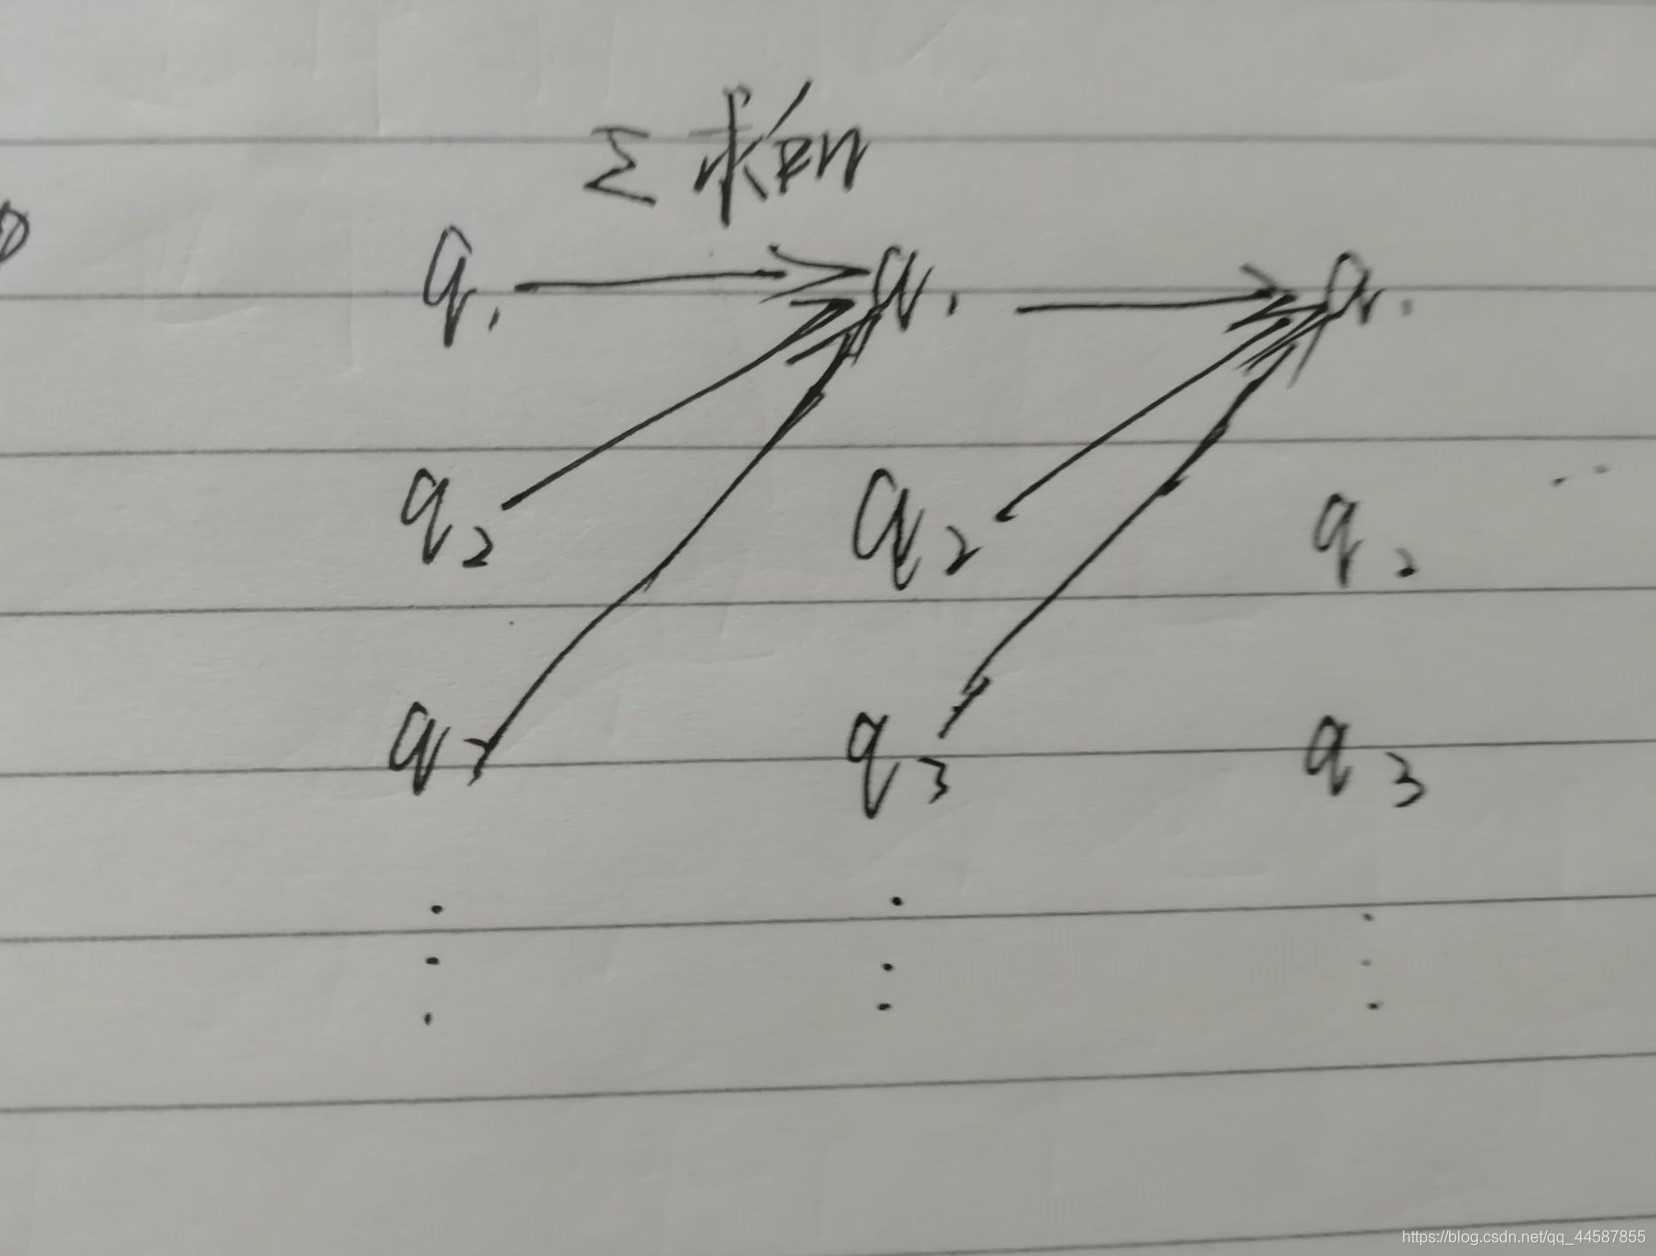 Σ求和
q₁ q₁ q₁
q₂ q₂ q₂
q q₃ q₃
https://blog.csdn.net/qq_44587855